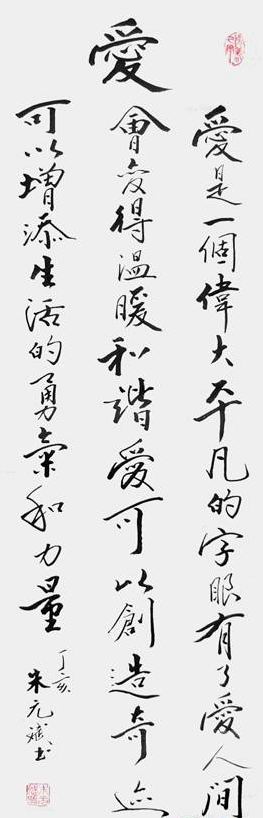 愛
愛是一個偉大平凡的字眼有了愛人間
會变得溫暖和諧愛可以創造奇迹
可以增添生活的勇氣和力量
丁亥
朱元斌书